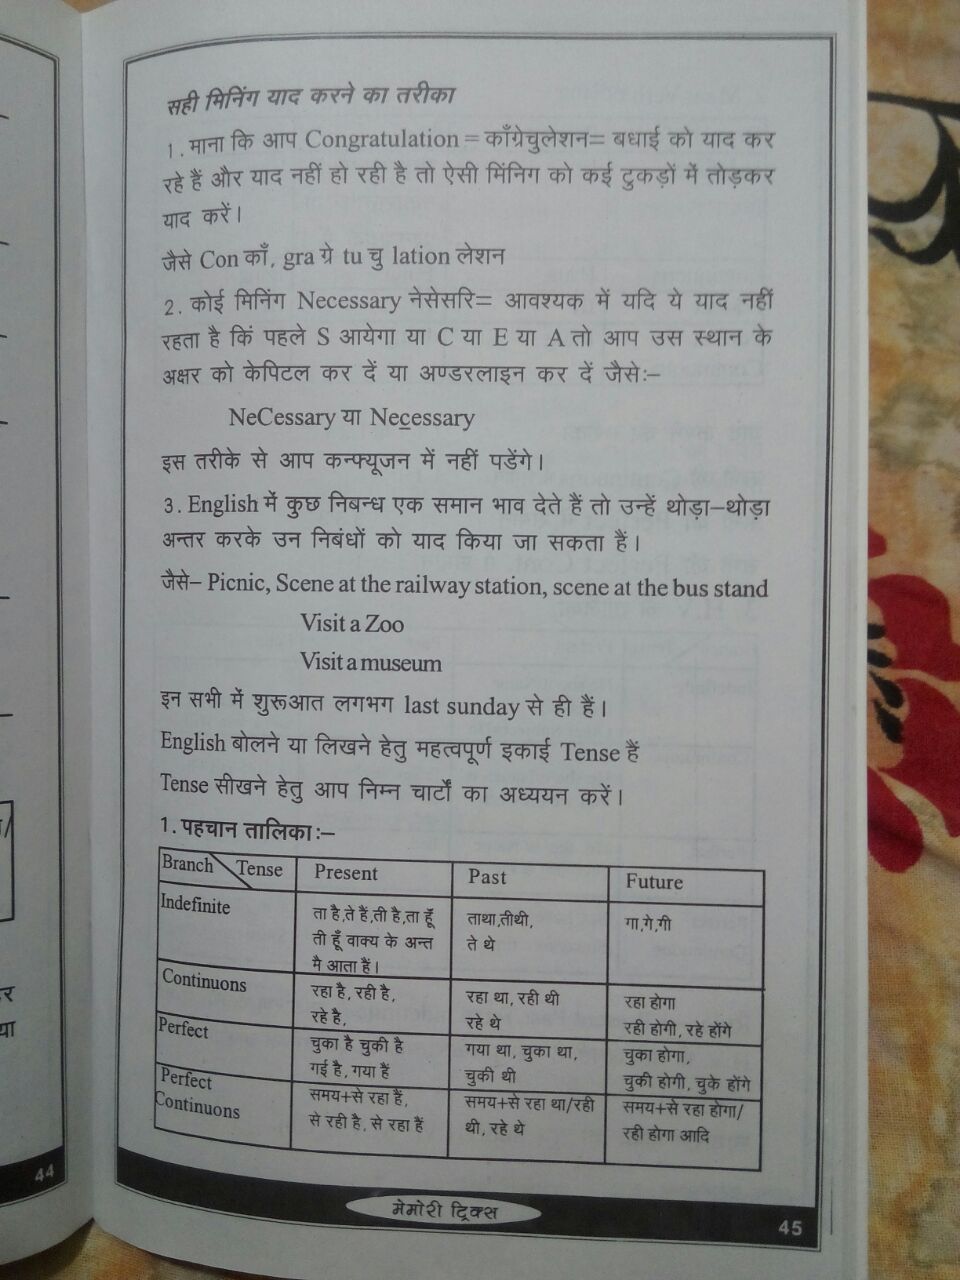 सही मिनिंग याद करने का तरीका
1. माना कि आप Congratulation = काँग्रेचुलेशन= बधाई को याद कर
रहे हैं और याद नहीं हो रही है तो ऐसी मिंनिग को कई टुकड़ों में तोड़कर
याद करें।
जैसे Con काँ, gra ग्रे tu चु lation लेशन
2. कोई मिनिंग Necessary नेसेसरि= आवश्यक में यदि ये याद नहीं
रहता है किं पहले S आयेगा या C या E या A तो आप उस स्थान के
अक्षर को केपिटल कर दें या अण्डरलाइन कर दें जैसे:–
NeCessary या Necessary
इस तरीके से आप कन्फ्यूजन में नहीं पडेंगे।
3. English में कुछ निबन्ध एक समान भाव देते हैं तो उन्हें थोड़ा–थोड़ा
अन्तर करके उन निबंधों को याद किया जा सकता हैं।
जैसे– Picnic, Scene at the railway station, scene at the bus stand
Visit a Zoo
Visit a museum
इन सभी में शुरूआत लगभग last sunday से ही हैं।
English बोलने या लिखने हेतु महत्वपूर्ण इकाई Tense हैं
Tense सीखने हेतु आप निम्न चार्टों का अध्ययन करें।
1. पहचान तालिका:–
Branch Tense Present Past Future
Indefinite ता है,ते हैं,ती है,ता हूँ ताथा,तीथी, गा,गे,गी
ती हूँ वाक्य के अन्त ते थे
मै आता हैं।
Continuons रहा है, रही है, रहा था, रही थी रहा होगा
रहे है, रहे थे रही होगी, रहे होंगे
Perfect चुका है चुकी है गया था, चुका था, चुका होगा,
गई है, गया हैं चुकी थी चुकी होगी, चुके होंगे
Perfect समय+से रहा हैं, समय+से रहा था/रही समय+से रहा होगा/
Continuons से रही है, से रहा हैं थी, रहे थे रही होगा आदि
मेमोरी ट्रिक्स
44
45